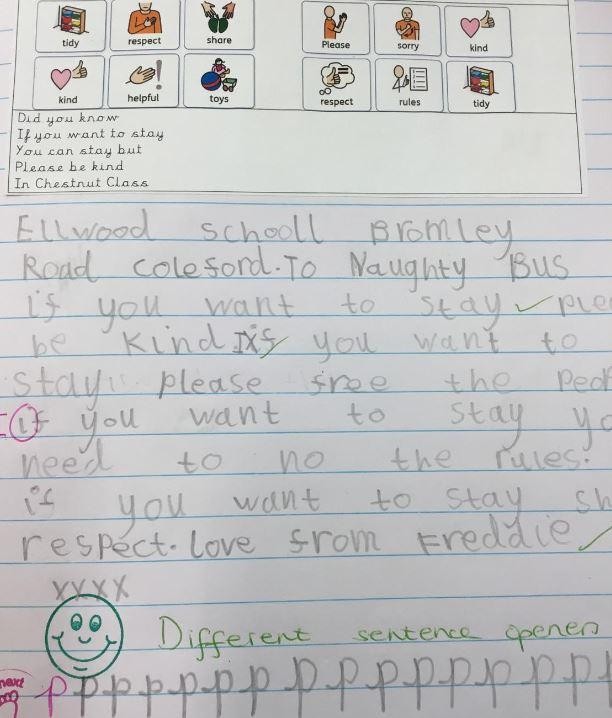 tidy respect share Please sorry kind
kind helpful toys respect rules tidy
Did you know
If you want to stay
You can stay but
Please be kind
In Chestnut Class
Ellwood schooll Bromley
Road coleford. To Naughty Bus
if you want to stay
be kind. if you want to
stay please free the
if you want to stay
need to no the rules.
if you want to stay
respect. love from Freddie
xxxx
Different sentence openers
next
p p p p p p p p p p p p p p p